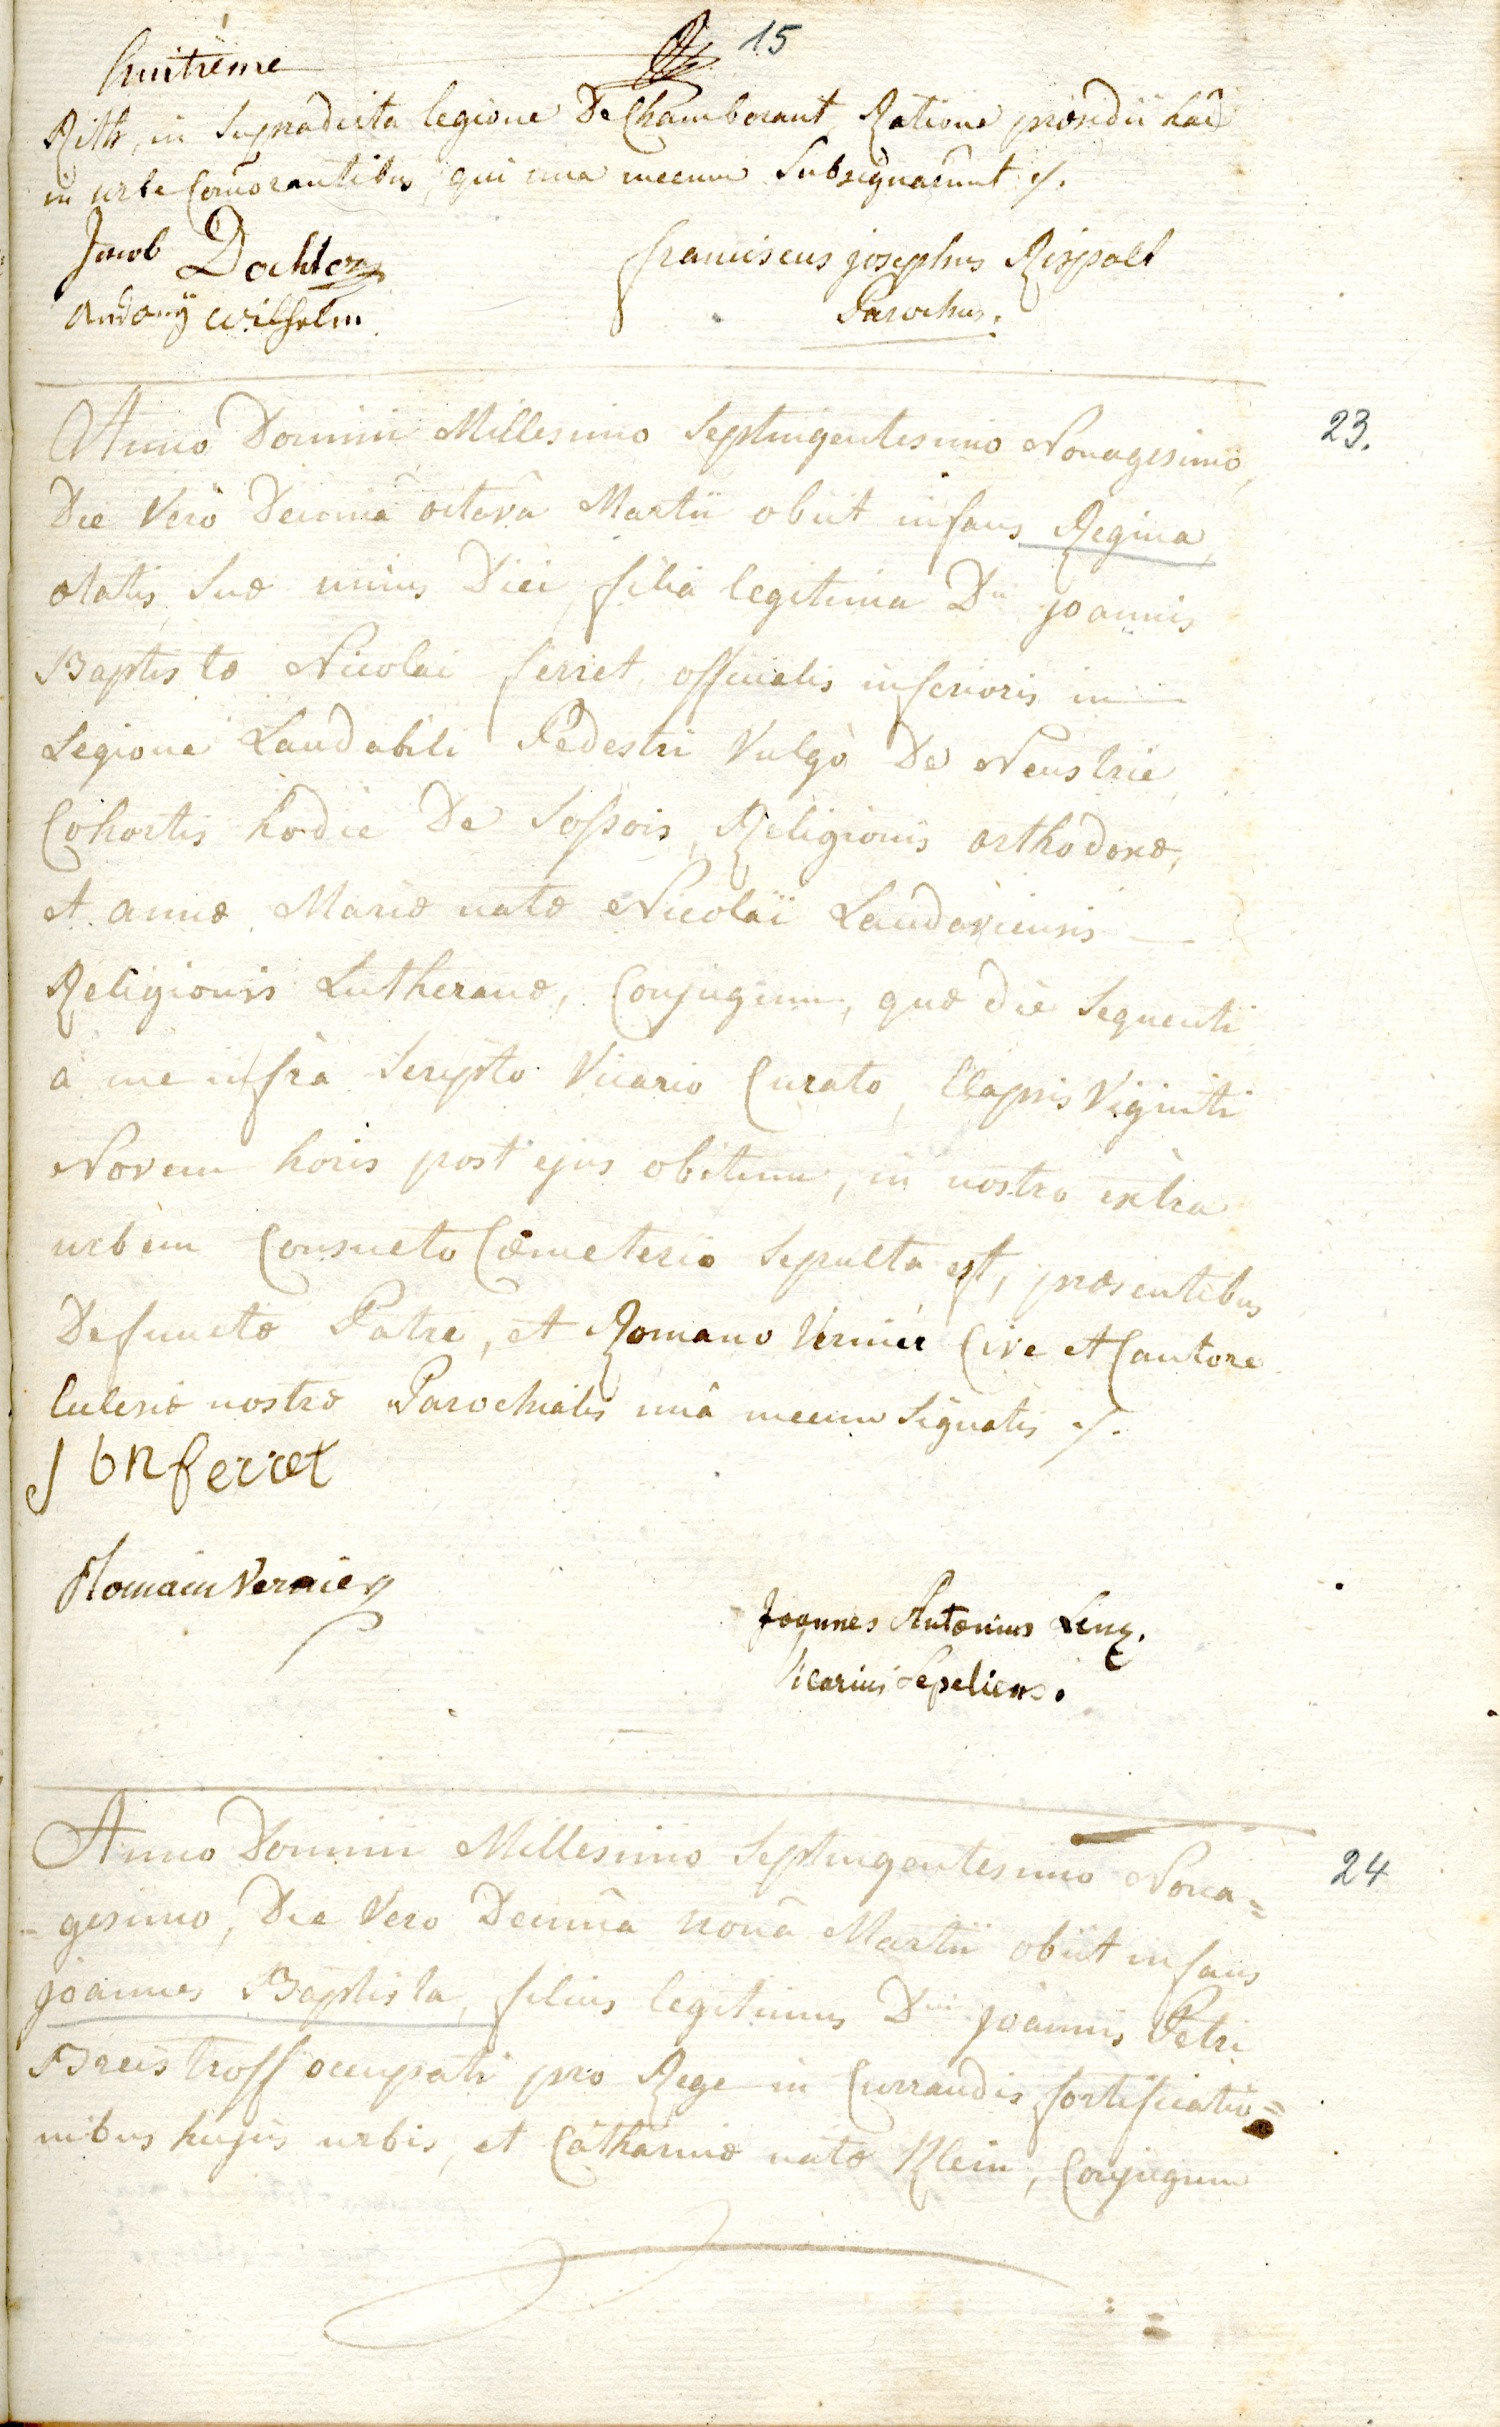 huitième
15
Rith, in supradicta legione De Chamborant, Ratione præsidii hac
in urbe Comorantibus, qui una mecum Subsignarunt ./.
Jacob Dochter
franciscus josephus Rispalt
andony wilhelm
Parochus.
23.
Anno Domini Millesimo Septingentesimo Nonagesimo,
Die Verò Decimâ octavâ Martii obiit infans Regina,
ætatis suæ unius Diei, filia legitima Dni joannis
Baptistæ Nicolai ferret, officialis inferioris in
Legione Laudabili Pedestri Vulgò De Neustrie
Cohortis hodie De Sossois, Religionis orthodoxæ,
et annæ Mariæ natæ Nicolaï Laudaviensis
Religionis Lutheranæ, Conjugum, quæ die sequenti
à me infrà Scripto Vicario Curato, Elapsis Viginti
Novem horis post ejus obitum, in nostro extra
urbem Consueto Cœmeterio Sepulta est, præsentibus
Defunctæ Patre, et Romano Vernier Cive et Cantore
Ecclesiæ nostræ Parochialis unâ mecum Signatis ./.
J b n ferret
Romain Vernier
Joannes Antonius Lenz.
Vicarius Sepeliens.
24
Anno Domini Millesimo Septingentesimo Nona=
=gesimo, Die Vero Decimâ nonâ Martii obiit infans
joannes Baptista, filius legitimus Dni joannis Petri
Breistroff occupati pro Rege in Currandis fortificatio=
nibus hujus urbis, et Catharinæ natæ Klein, Conjugum